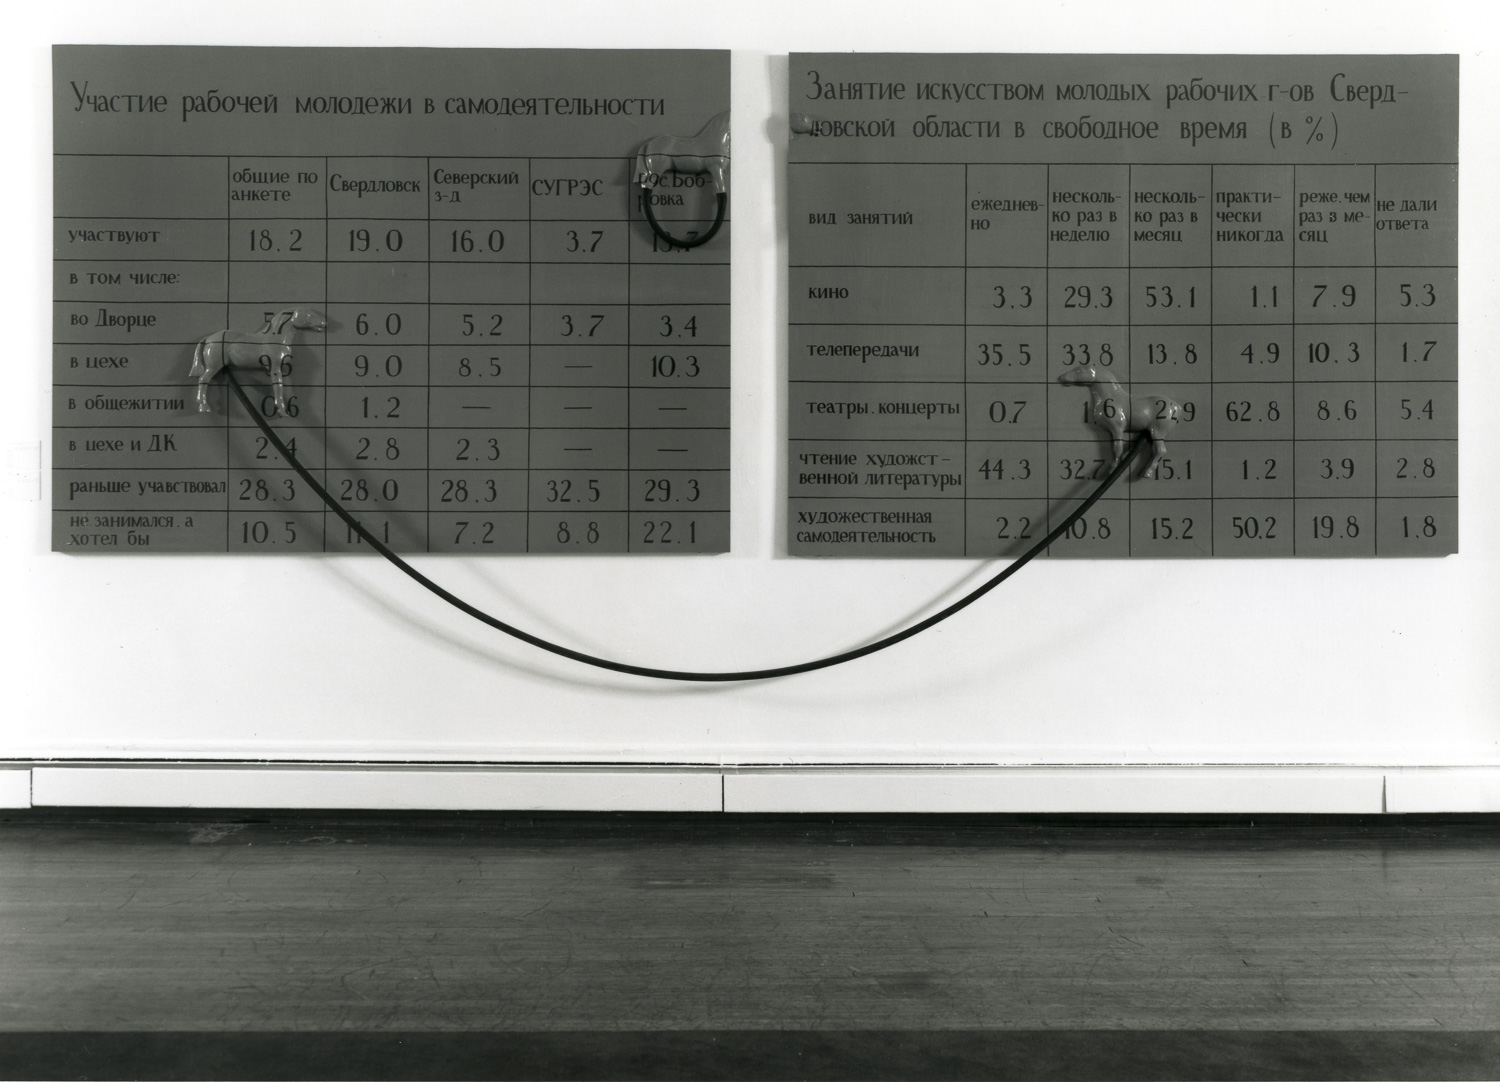 Участие рабочей молодежи в самодеятельности
общие по
анкете
Свердловск
Северский
з-д
СУГРЭС
участвуют 18.2 19.0 16.0 3.7
в том числе:
во Дворце 5.7 6.0 5.2 3.7 3.4
в цехе 9.6 9.0 8.5 — 10.3
в общежитии 0.6 1.2 — — —
в цехе и ДК 2.4 2.8 2.3 — —
раньше учавствовал 28.3 28.0 28.3 32.5 29.3
не занимался, а
хотел бы
10.5 11.1 7.2 8.8 22.1
Занятие искусством молодых рабочих г-ов Сверд-
ловской области в свободное время (в %)
вид занятий
ежеднев-
но
несколь-
ко раз в
неделю
несколь-
ко раз в
месяц
практи-
чески
никогда
реже. чем
раз в ме-
сяц
не дали
ответа
кино 3.3 29.3 53.1 1.1 7.9 5.3
телепередачи 35.5 33.8 13.8 4.9 10.3 1.7
театры. концерты 0.7 1.6 62.8 8.6 5.4
чтение художест-
венной литературы
44.3 32.7 15.1 1.2 3.9 2.8
художественная
самодеятельность
2.2 10.8 15.2 50.2 19.8 1.8